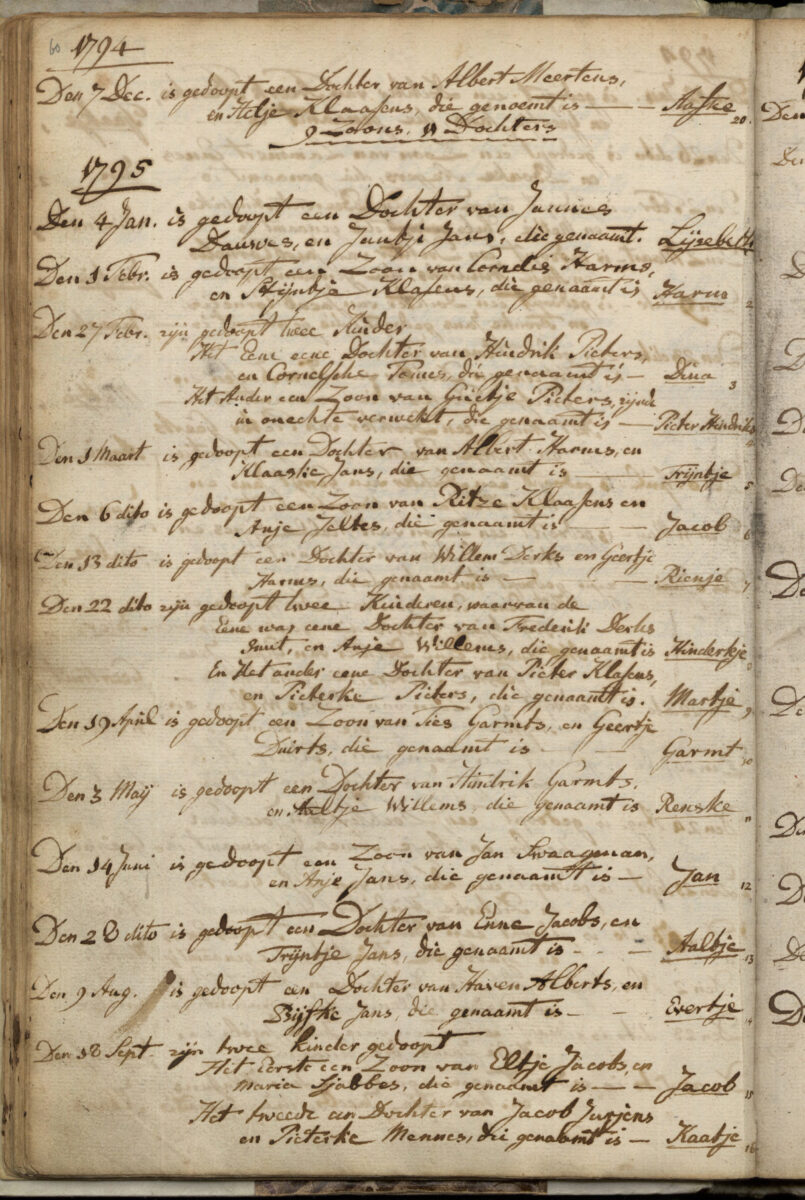 60 1794
Den 7 Dec. is gedoopt een Dochter van Albert Meertens,
en Hilje Klaasens, die genoemt is — Aafke 20
9 Zoons, 11 Dochters
1795
Den 4 Jan. is gedoopt een Dochter van Jannes
Dauwes, en Jantje Jans, die genaamt. Lijsebeth
Den 1 Febr. is gedoopt een Zoon van Cornelis Harms,
en Stijntje Klasens, die genaamt is Harm 2
Den 27 Febr. zijn gedoopt twee Kinder
Het Eene eene Dochter van Hindrik Pieters,
en Cornelske Tomes, die genaamt is — Dina 3
Het Ander een Zoon van Grietje Pieters, zijnde
in onechte verwekt, die genaamt is — Pieter Hindriks 4
Den 1 Maart is gedoopt een Dochter van Albert Harms, en
Klaaske Jans, die genaamt is — Trijntje 5
Den 6 dito is gedoopt een Zoon van Ritze Klaasens en
Anje Jeltes, die genaamt is — Jacob 6
Den 13 dito is gedoopt een Dochter van Willem Derks en Geertje
Harms, die genaamt is — — Rienje 7
Den 22 dito zijn gedoopt twee Kinderen, waarvan de
Eene was eene Dochter van Frederik Derks
Smit, en Anje Willems, die genaamt is Hinderkje 8
En Het ander eene Dochter van Pieter Klasens,
en Pieterke Pieters, die genaamt is. Martje 9
Den 19 April is gedoopt een Zoon van Ties Garmts, en Geertje
Duirts, die genaamt is — Garmt 10
Den 3 Maij is gedoopt een Dochter van Hindrik Garmts,
en Aaltje Willems, die genaamt is Renske 11
Den 14 Juni is gedoopt een Zoon van Jan Swaagman,
en Anje Jans, die genaamt is — Jan 12
Den 28 dito is gedoopt een Dochter van Enne Jacobs, en
Trijntje Jans, die genaamt is - - - Aaltje 13
Den 9 Aug. is gedoopt een Dochter van Haven Alberts, en
Jans, die genaamt is — — Evertje 14
Den 18 Sept. zijn twee kinder gedoopt
Het Eerste een Zoon van Eltje Jacobs, en
Maria Sjabbes, die genaamt is — — Jacob 15
Het tweede een Dochter van Jacob Jurjens
en Pieterke Mennes, die genaamt is — Kaatje 16